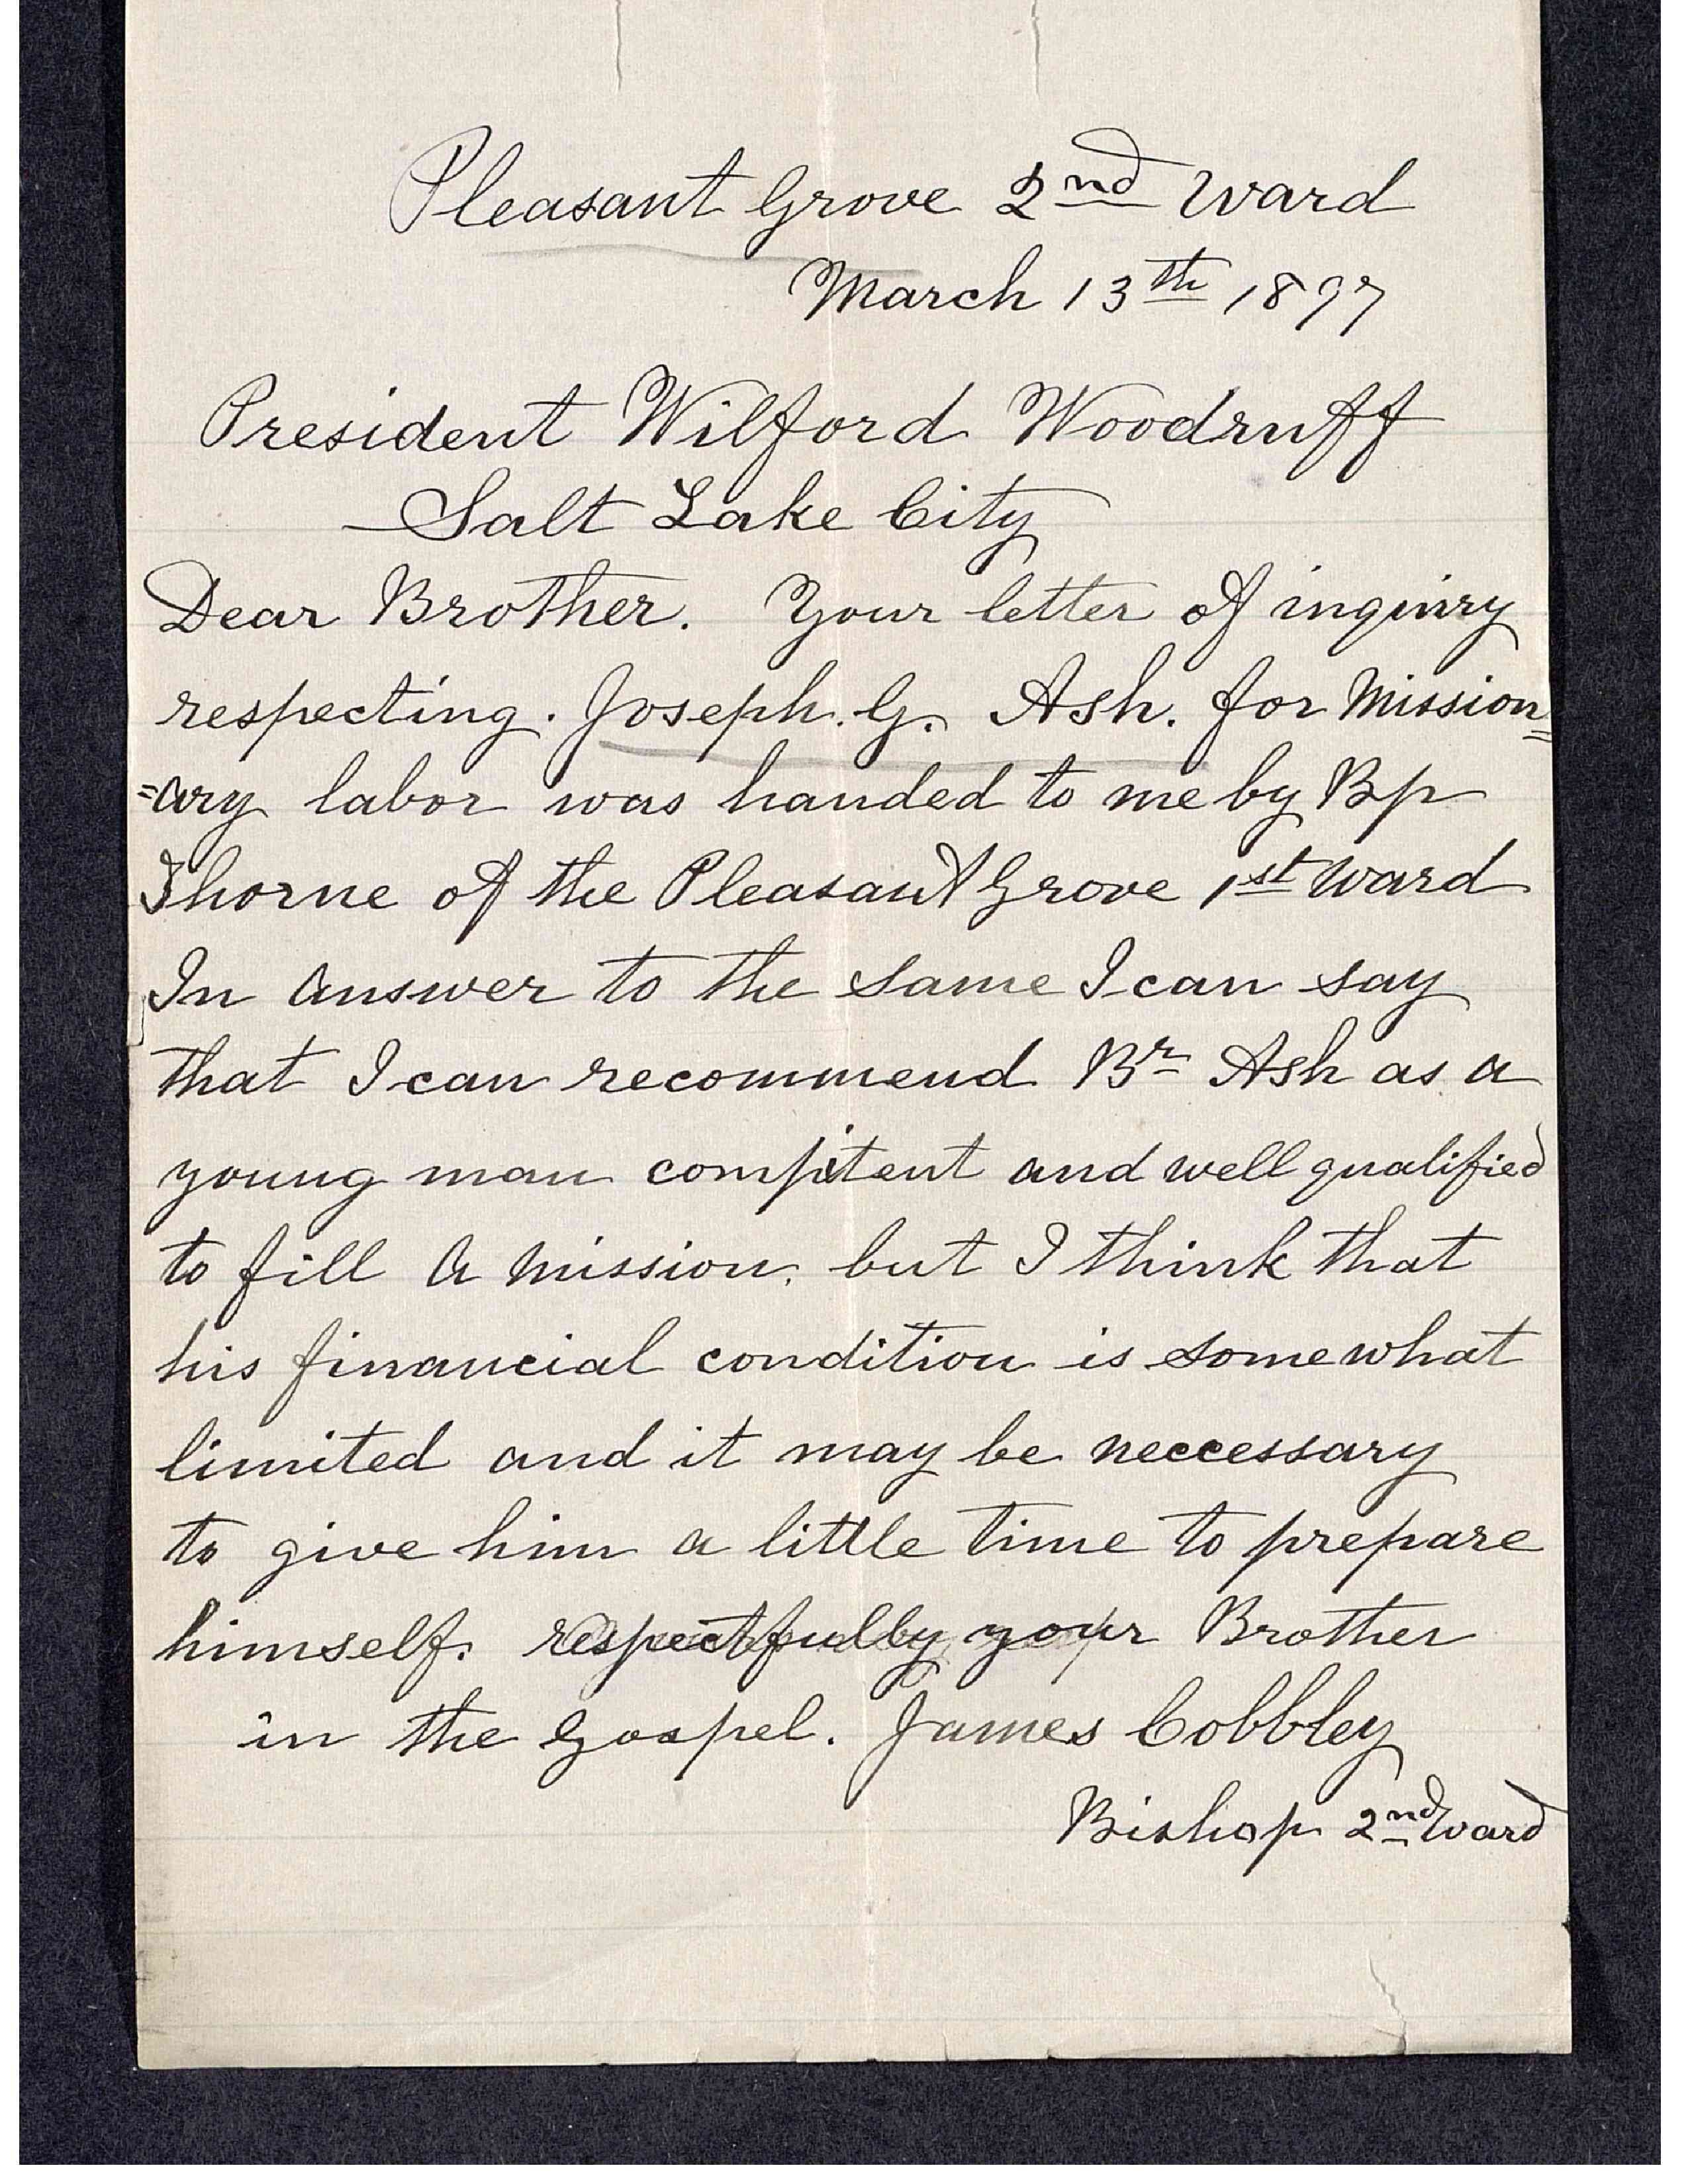 Pleasant Grove 2nd Ward
March 13th 1897
President Wilford Woodruff
Salt Lake City
Dear Brother. Your letter of inquiry
respecting. Joseph. G. Ash. for Mission=
=ary labor was handed to me by Bp
Thorne of the Pleasant Grove 1st Ward
In answer to the same I can say
that I can recommend Br Ash as a
young man compitent and well qualified
to fill a mission. but I think that
his financial condition is somewhat
limited and it may be neccessary
to give him a little time to prepare
himself. respectfully your Brother
in the Gospel. James Cobbley
Bishop 2nd Ward